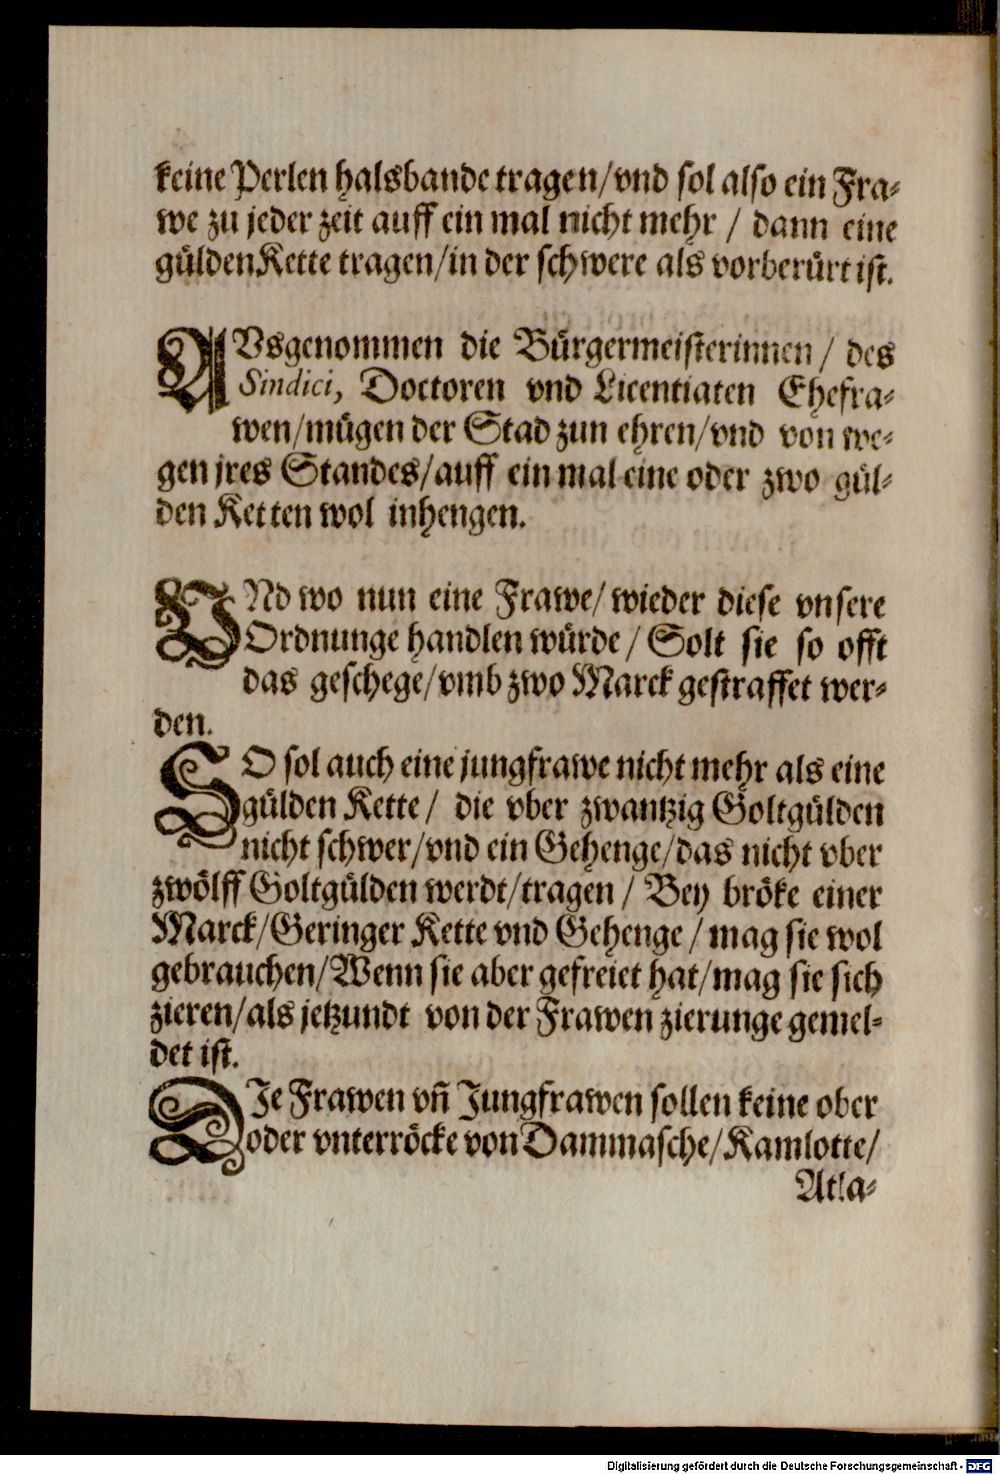 keine Perlen halsbande tragen/vnd sol also ein Fra-
we zu jeder zeit auff ein mal nicht mehr / dann eine
gülden Kette tragen/in der schwere als vorberürt ist.
AVsgenommen die Bürgermeisterinnen / des
Sindici, Doctoren vnd Licentiaten Ehefra-
wen/mügen der Stad zun ehren/vnd von we-
gen jres Standes/auff ein mal eine oder zwo gül-
den Ketten wol inhengen.
VNd wo nun eine Frawe/wieder diese vnsere
Ordnunge handlen würde/ Solt sie so offt
das geschege/vmb zwo Marck gestraffet wer-
den.
SO sol auch eine jungfrawe nicht mehr als eine
gülden Kette/ die vber zwantzig Goltgülden
nicht schwer/vnd ein Gehenge/das nicht vber
zwölff Goltgülden werdt/tragen/ Bey bröke einer
Marck/Geringer Kette vnd Gehenge/mag sie wol
gebrauchen/Wenn sie aber gefreiet hat/mag sie sich
zieren/als jetzundt von der Frawen zierunge gemel-
det ist.
DIe Frawen vñ Jungfrawen sollen keine ober
oder vnterröcke von Dammasche/Kamlotte/
Atla-
Digitalisierung gefördert durch die Deutsche Forschungsgemeinschaft - DFG